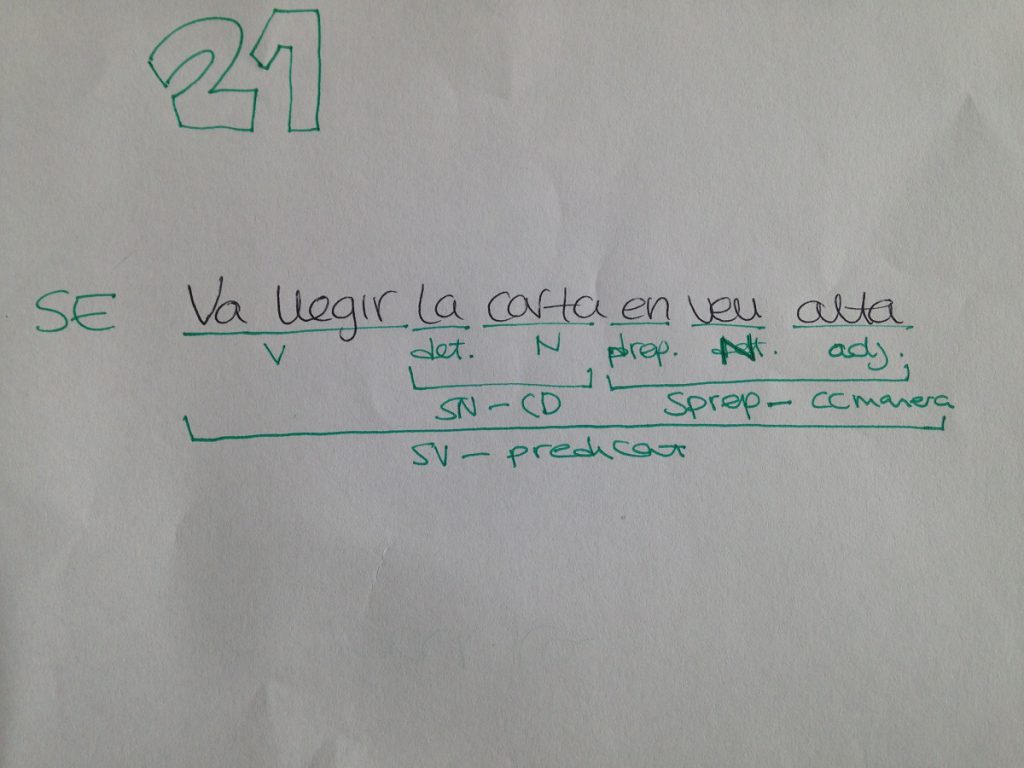 21
SE Va llegir la carta en veu alta
V det. N prep. N adj.
SN - CD Sprep - CCmanera
SV - predicat